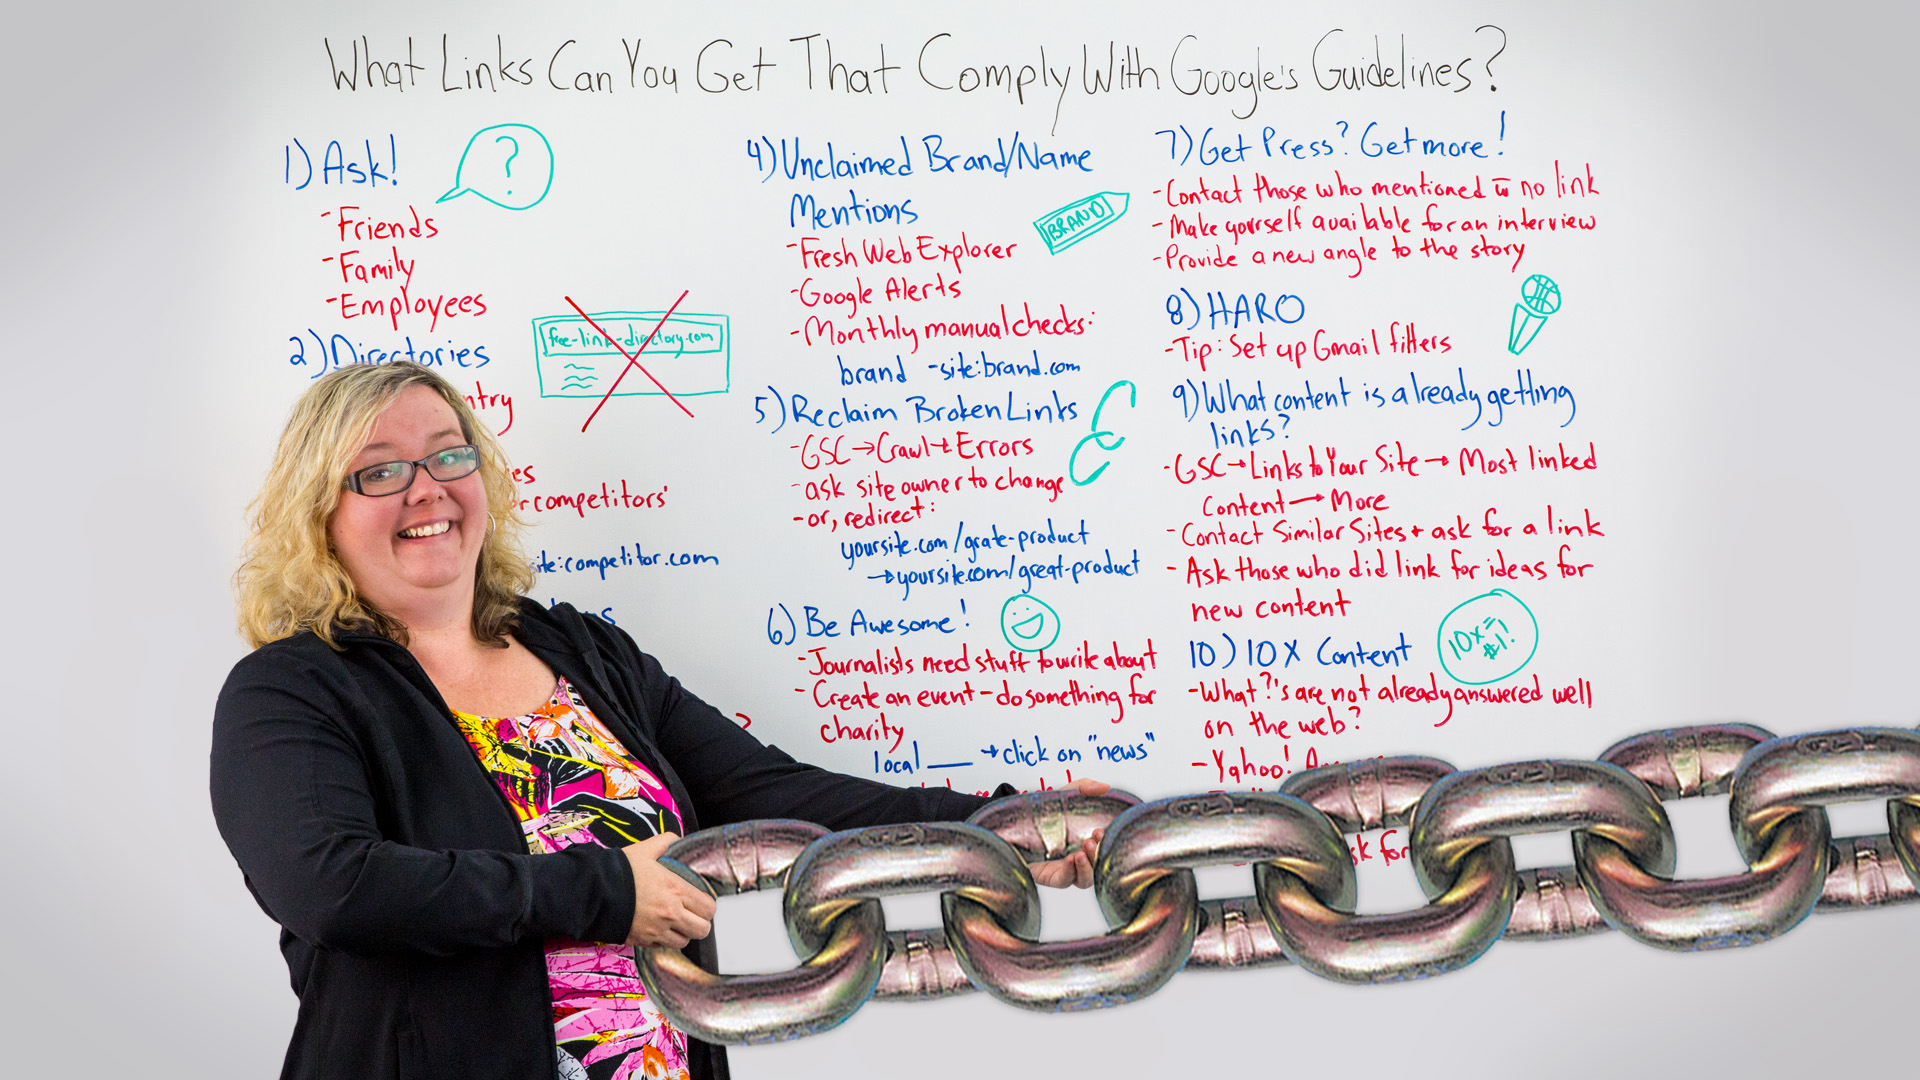 What Links Can You Get That Comply With Google's Guidelines?
1) Ask!
?
- Friends
- Family
- Employees
2) Directories
free-link-directory.com
competitors'
site:competitor.com
?
4) Unclaimed Brand/Name
Mentions
BRAND
- Fresh Web Explorer
- Google Alerts
- Monthly manual checks:
brand -site:brand.com
5) Reclaim Broken Links
- GSC → Crawl → Errors
- ask site owner to change
- or, redirect:
yoursite.com/grate-product
→ yoursite.com/great-product
6) Be Awesome!
- Journalists need stuff to write about
- Create an event - do something for
charity
local ___ → click on "news"
7) Get Press? Get more!
- Contact those who mentioned w̄ no link
- Make yourself available for an interview
- Provide a new angle to the story
8) HARO
- Tip: Set up Gmail filters
9) What content is already getting
links?
- GSC → Links to Your Site → Most linked
Content → More
- Contact Similar Sites + ask for a link
- Ask those who did link for ideas for
new content
10) 10X Content
10x =
#1!
- What ?'s are not already answered well
on the web?
- Yahoo!
for